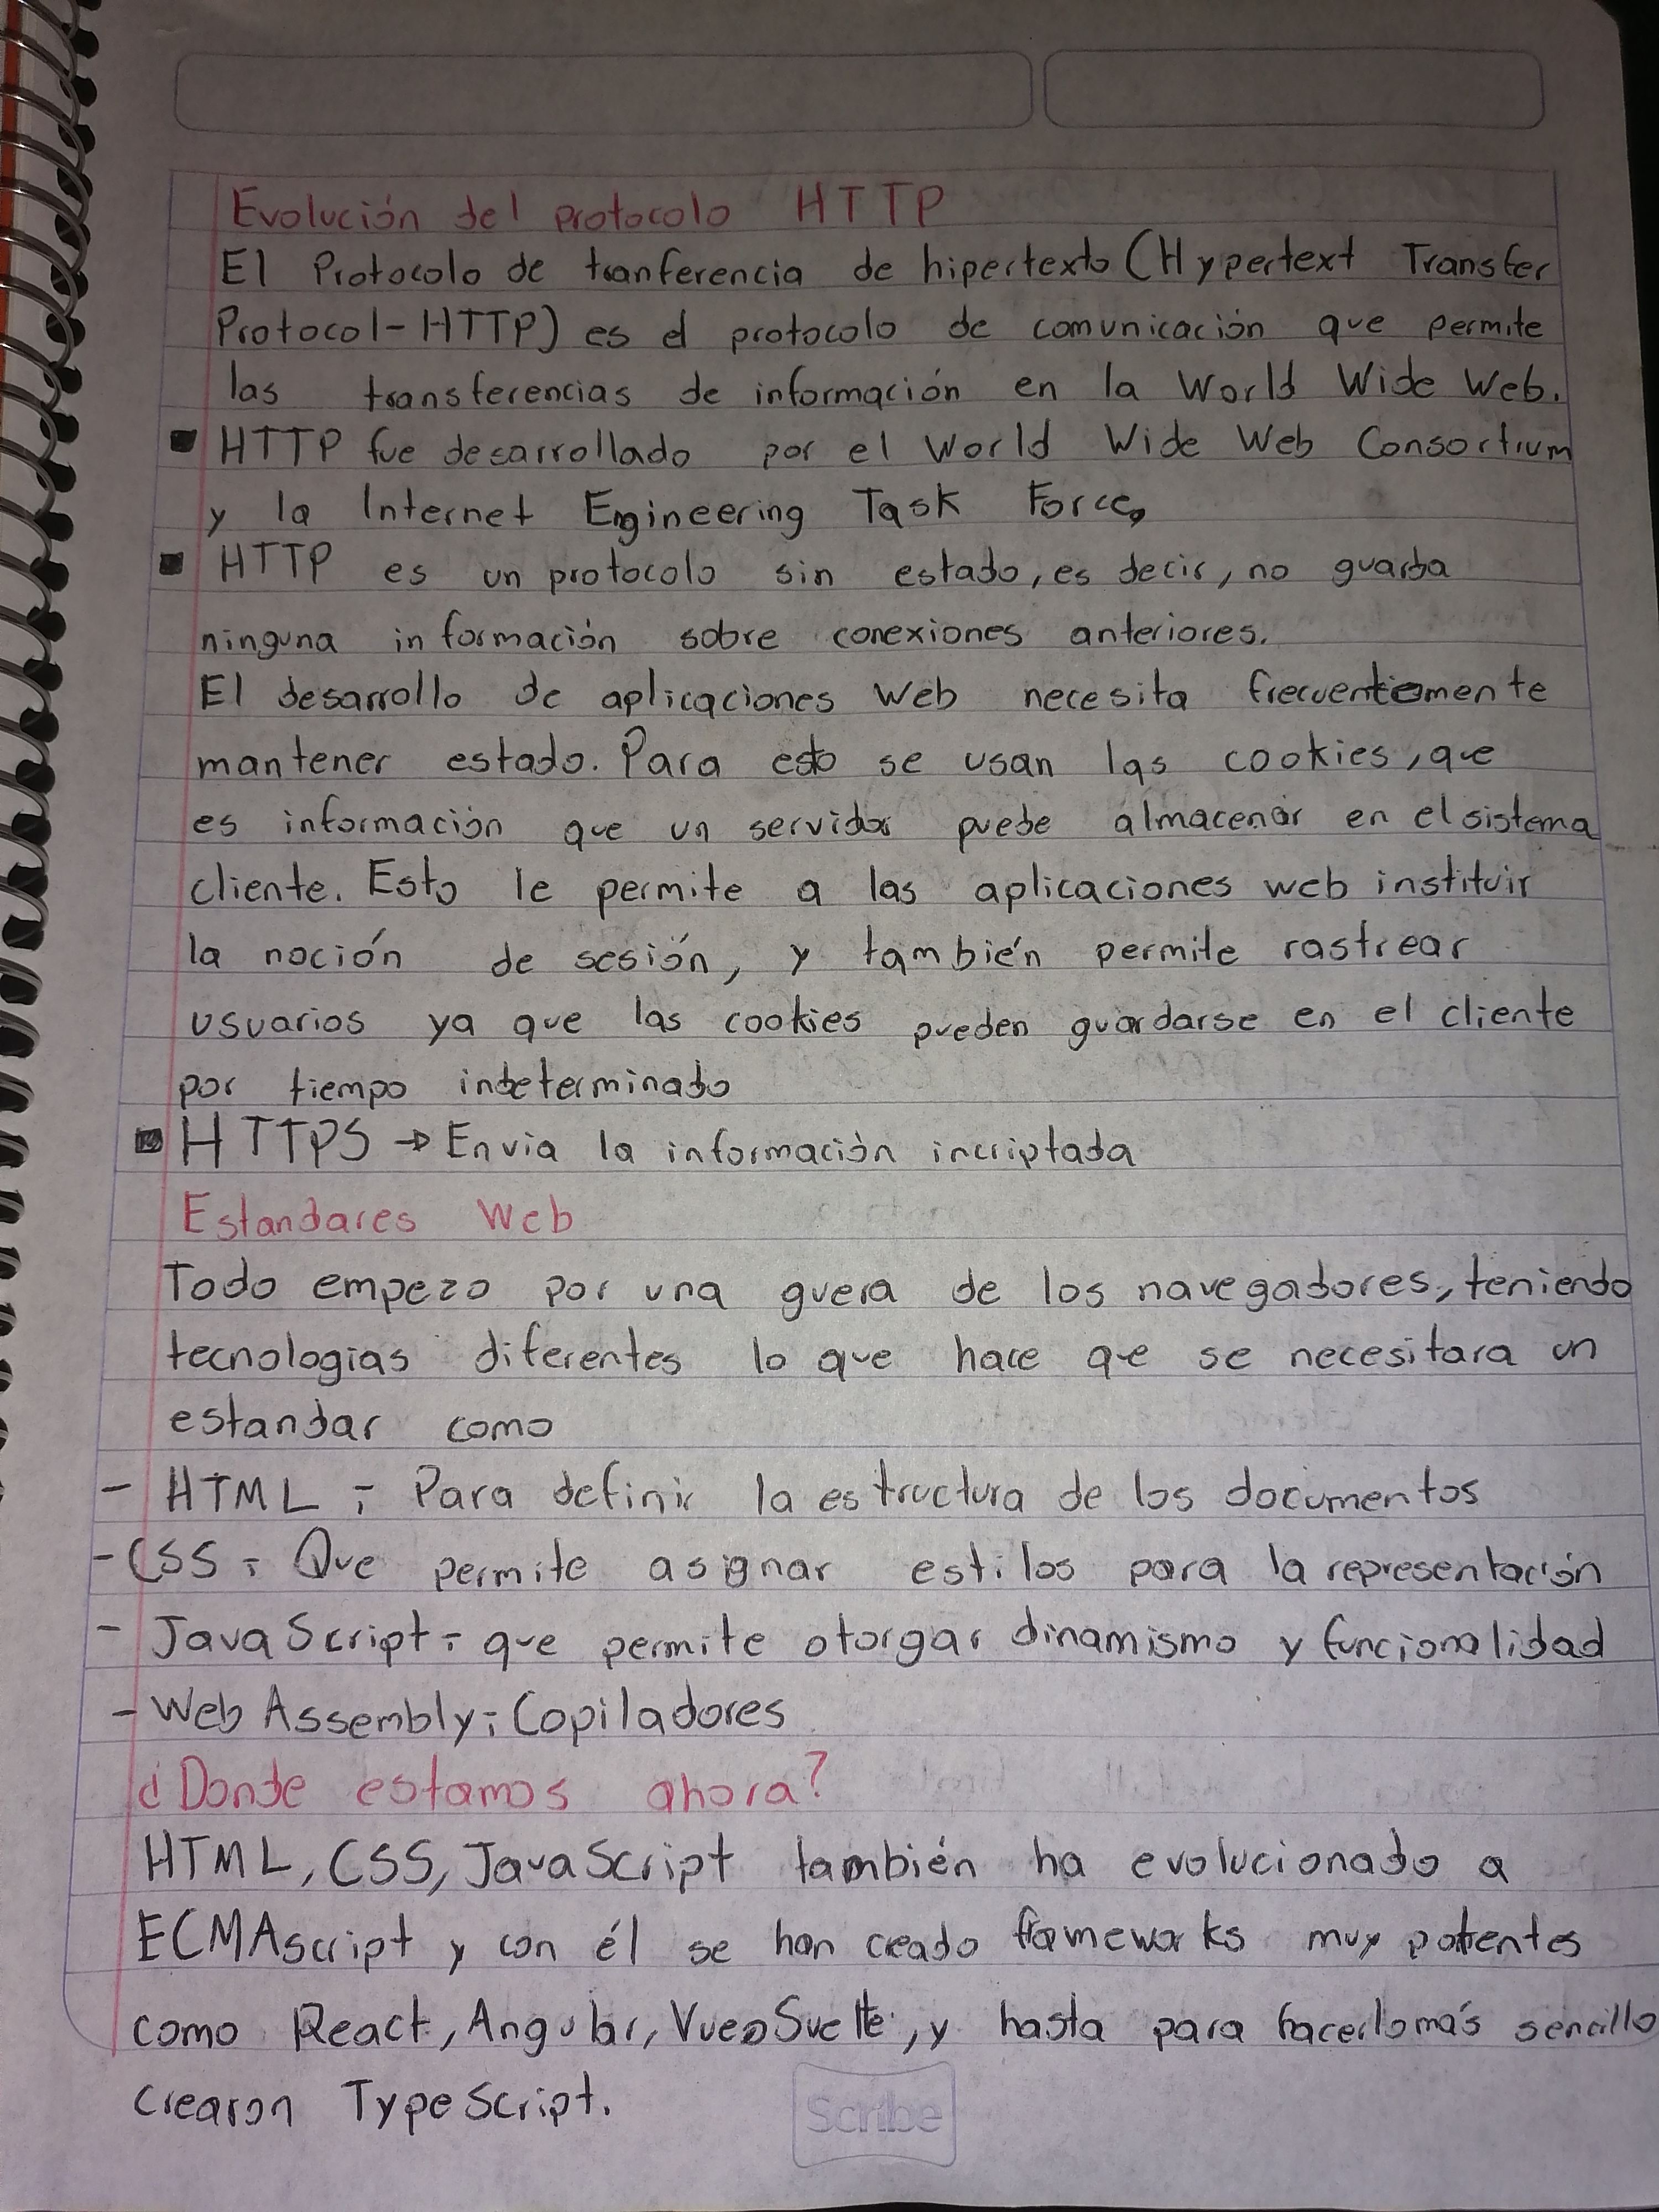 Evolución del protocolo HTTP
El Protocolo de tranferencia de hipertexto (Hypertext Transfer
Protocol-HTTP) es el protocolo de comunicación que permite
las transferencias de información en la World Wide Web.
▪ HTTP fue desarrollado por el World Wide Web Consortium
y la Internet Engineering Task Force,
▪ HTTP es un protocolo sin estado, es decir, no guarda
ninguna información sobre conexiones anteriores.
El desarrollo de aplicaciones web necesita frecuentemente
mantener estado. Para esto se usan las cookies, que
es información que un servidor puede almacenar en el sistema
cliente. Esto le permite a las aplicaciones web instituir
la noción de sesión, y también permite rastrear
usuarios ya que las cookies pueden guardarse en el cliente
por tiempo indeterminado
▪ HTTPS → Envia la información incriptada
Estandares Web
Todo empezo por una guera de los navegadores, teniendo
tecnologias diferentes lo que hace qe se necesitara un
estandar como
- HTML ;- Para definir la estructura de los documentos
- CSS ;- Que permite asignar estilos para la representación
- JavaScript ;- que permite otorgar dinamismo y funcionalidad
- Web Assembly ;- Copiladores
¿Donde estamos ahora?
HTML, CSS, JavaScript también ha evolucionado a
ECMAscript y con él se han creado frameworks muy potentes
como React, Angular, Vue o Svelte, y hasta para hacerlo más sencillo
crearon TypeScript.
Scribe